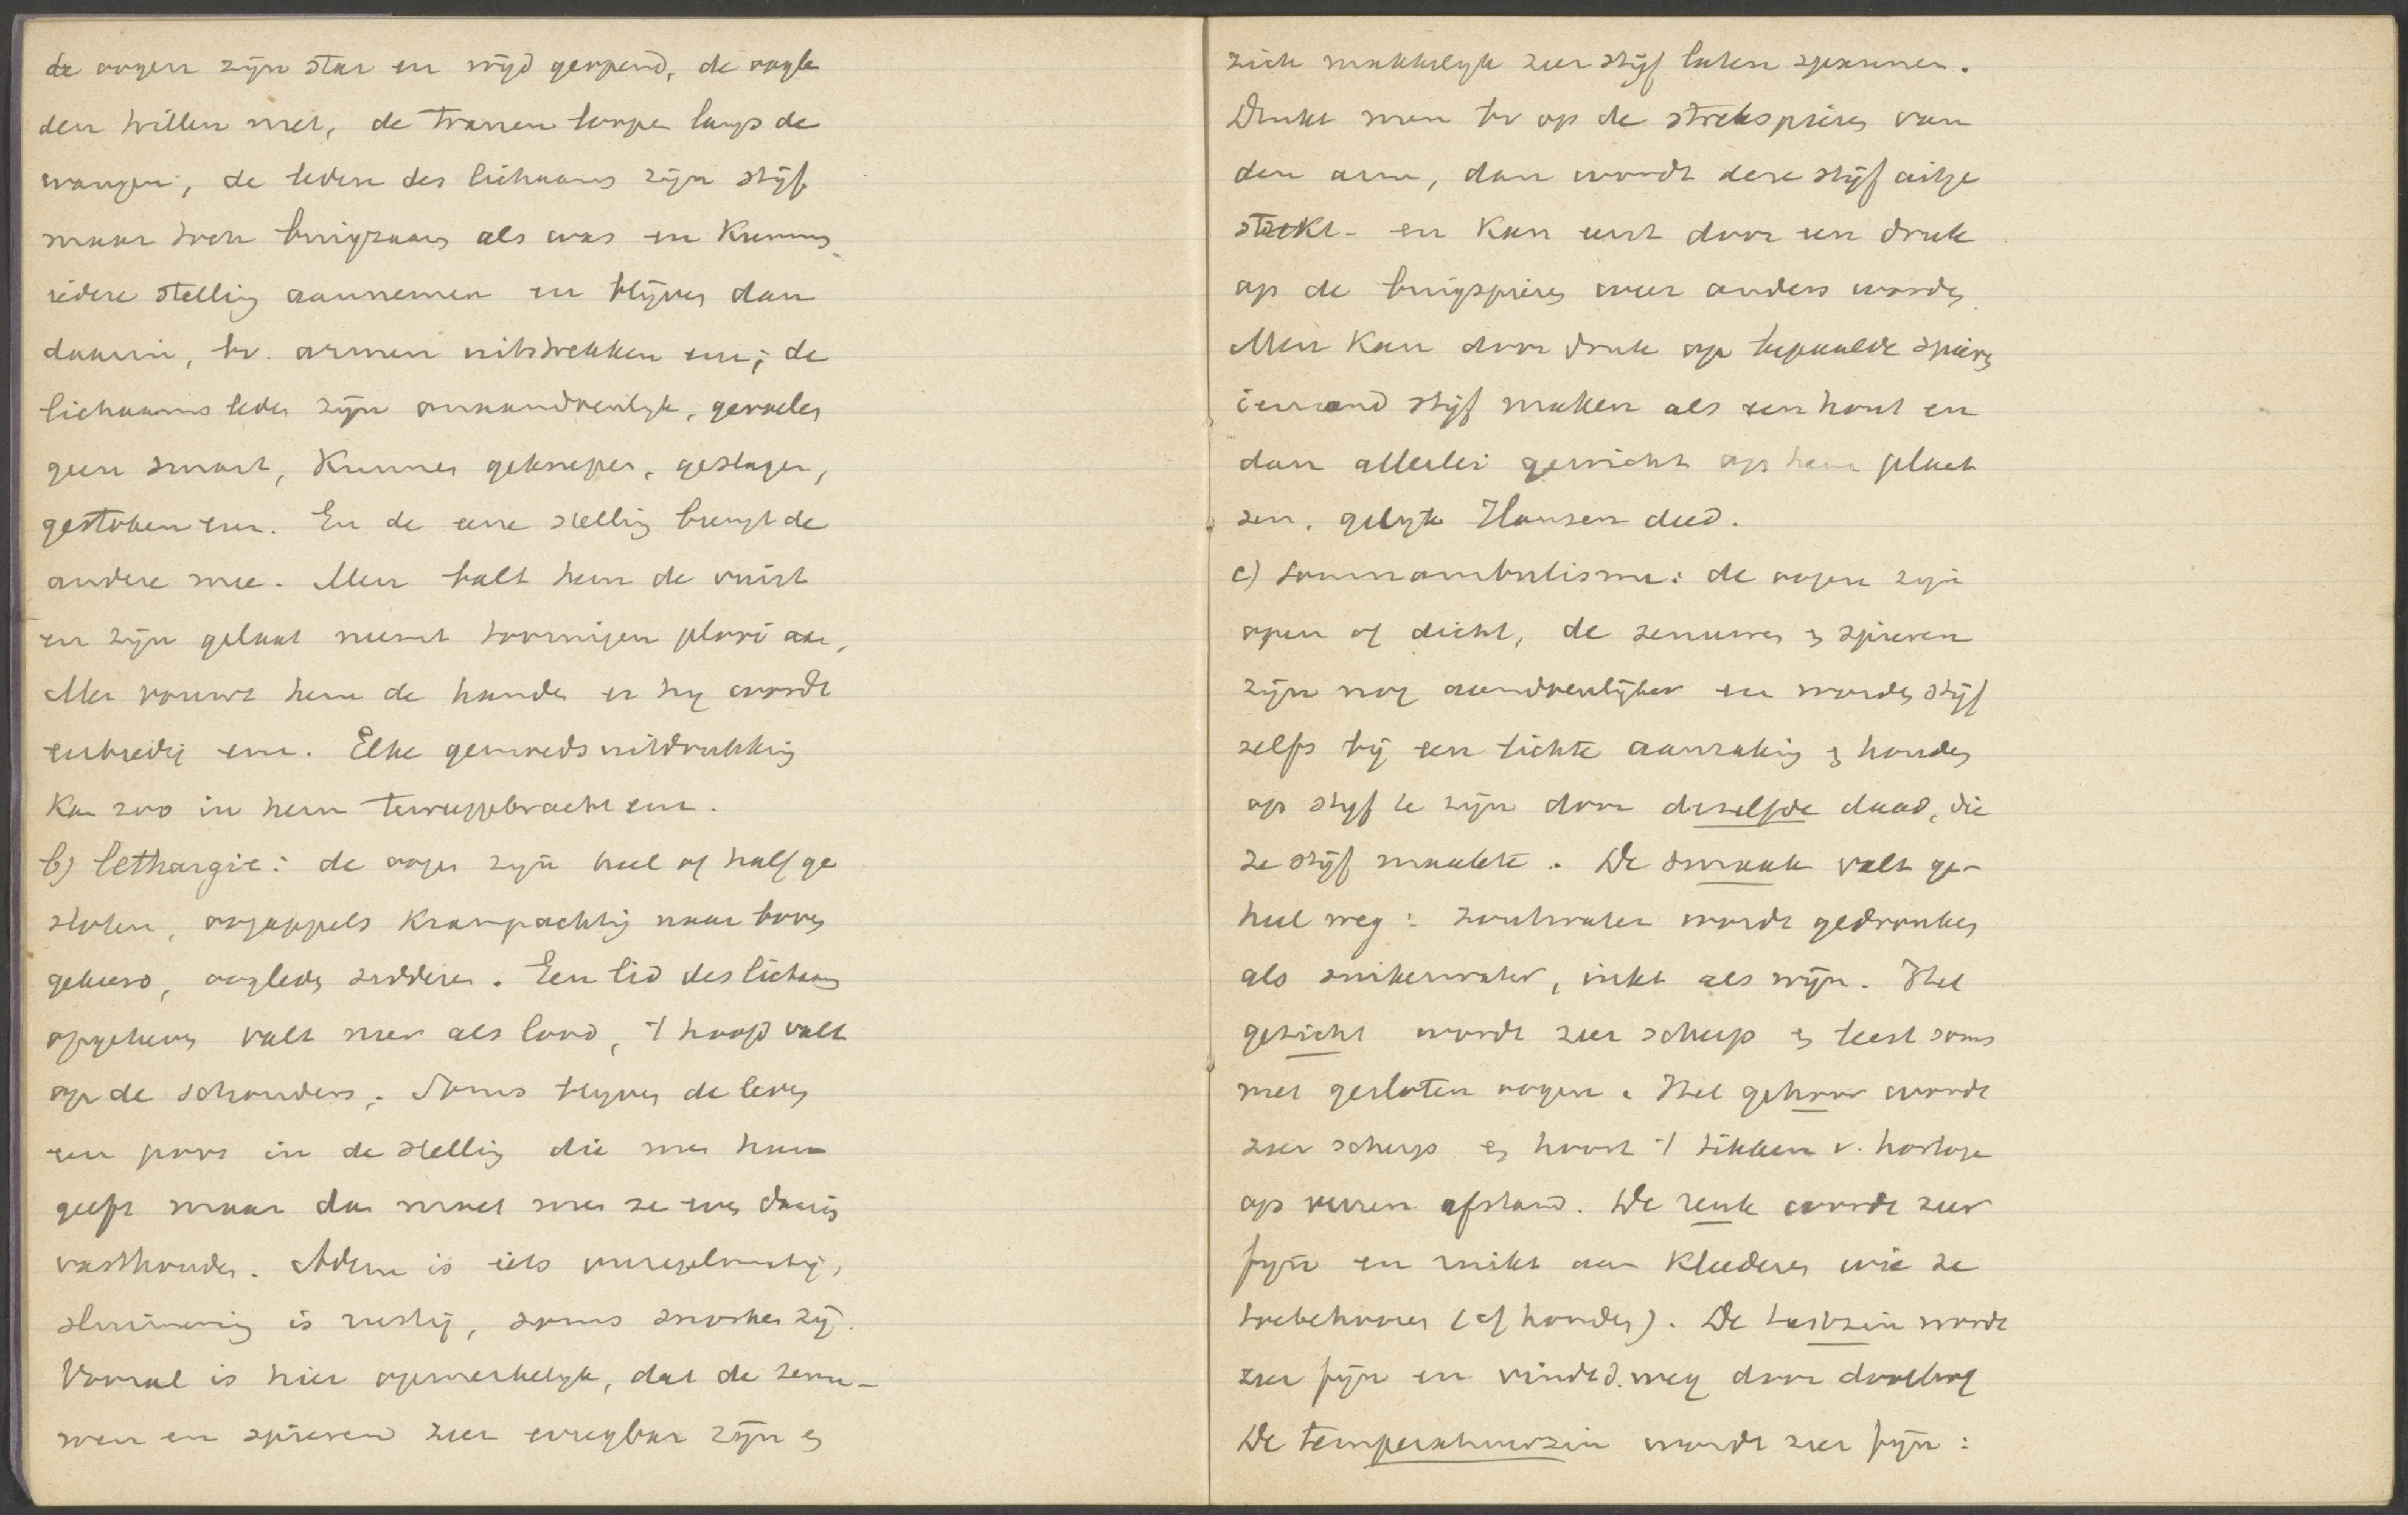 de oogen zijn star en wijd geopend, de oogle
den trillen niet, de tranen loopen langs de
wangen, de leden des lichaams zijn stijf
maar toch buigzaam als was en kunnen
iedere stelling aannemen en blijven dan
daarin, bv. armen uitstrekken enz; de
lichaamsleden zijn onaandoenlijk, gevoelen
geen smart, kunnen geknepen, geslagen,
gestoken enz. En de eene stelling brengt de
andere mee. Men balt hem de vuist
en zijn gelaat neemt toornigen plooi aan,
Men vouwt hem de handen en hij wordt
eerbiedig enz. Elke gemoedsuitdrukking
kan zoo in hem teruggebracht enz.
b) lethargie: de oogen zijn heel of half ge
sloten, oogappels krampachtig naar boven
gekeerd, oogleden sidderen. Een lid des lichaams
opgeheven valt neer als lood, 't hoofd valt
op de schouders. Soms blijven de leden
een poos in de stelling die men hun
geeft maar dan moet men ze even daarin
vasthouden. Adem is iets onregelmatig,
sluimering is rustig, soms snorken zij.
Vooral is hier opmerkelijk, dat de zenu-
wen en spieren zeer erregbar zijn en
zich makkelijk zeer stijf laten spannen.
Drukt men bv op de strekspieren van
den arm, dan wordt deze stijf uitge
strekt - en kan eerst door een druk
op de buigspieren weer anders worden.
Men kan door druk op bepaalde spieren
iemand stijf maken als een hout en
dan allerlei gewicht op hem plaat
sen, gelijk Hansen deed.
c) somnambulisme: de oogen zijn
open of dicht, de zenuwen en spieren
zijn nog aandoenlijker en worden stijf
zelfs bij een lichte aanraking en houden
op stijf te zijn door dezelfde daad, die
ze stijf maakte. De smaak valt ge-
heel weg: zoutwater wordt gedronken
als suikerwater, inkt als wijn. Het
gezicht wordt zeer scherp en leest soms
met gesloten oogen. Het gehoor wordt
zeer scherp en hoort 't tikken v. horloge
op verren afstand. De reuk wordt zeer
fijn en ruikt aan kleederen wie ze
toebehooren (cf honden). De tastzin wordt
zeer fijn en vindt d. weg door doolhof
De temperatuurzin wordt zeer fijn: